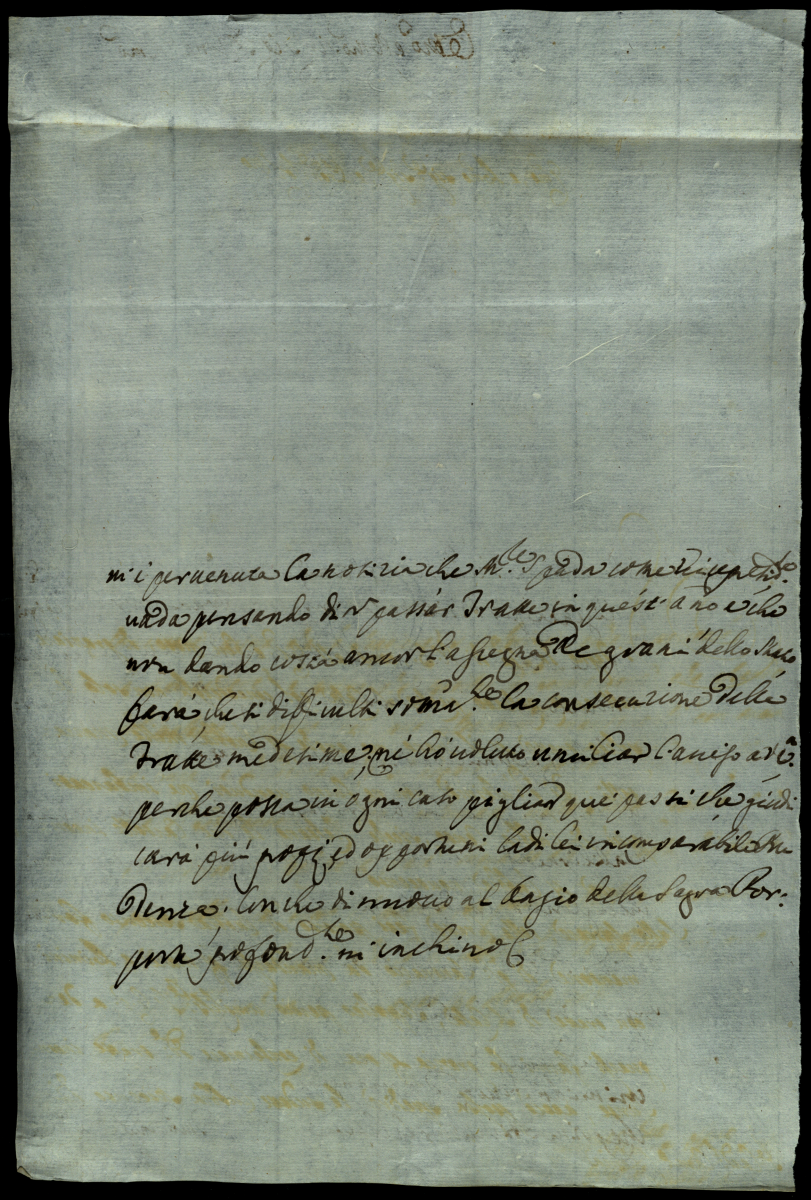 mi è pervenuta la notizia che M.re Spada come Vicepresid.te
vada pensando di ripassar Tratte in quest'anno e che
non dando costà ancor l'assegna de grani dello Stato
farà che si difficulti som.te la consecuzione delle
Tratte medesime; nè hò voluto umiliar l'aviso a V. E.a
perche possa in ogni caso pigliar quei passi che giudi
carà più proprj ed opportuni la di lei incomparabile Pru
denza. Con che di nuovo al bagio della Sagra Por:
pora profond.te m'inchino